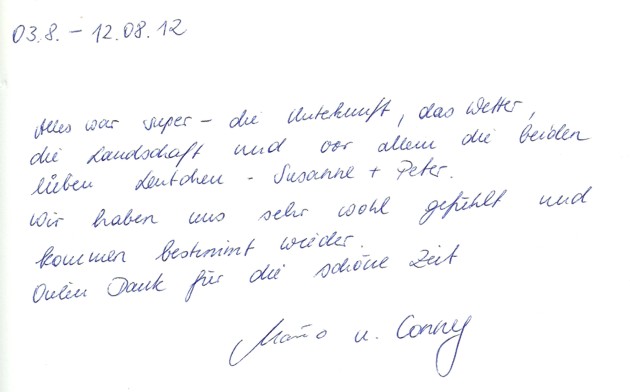 03.8. – 12.08.12
Alles war super – die Unterkunft, das Wetter,
die Landschaft und vor allem die beiden
lieben Leutchen – Susanne + Peter.
Wir haben uns sehr wohl gefühlt und
kommen bestimmt wieder.
Vielen Dank für die schöne Zeit
Mario u. Conny